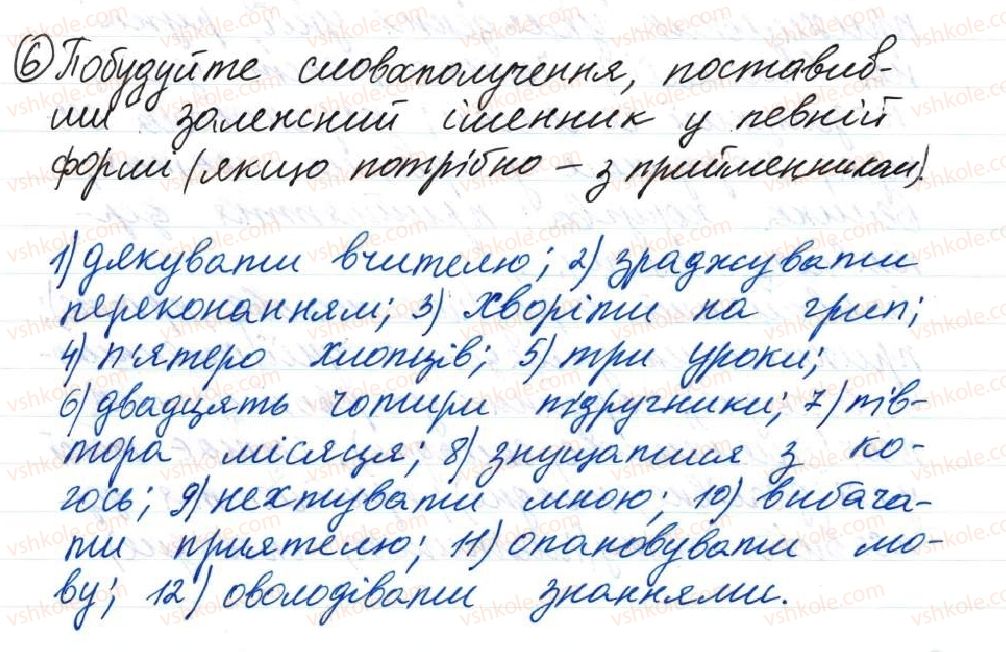 6 Побудуйте словосполучення, поставив-
ши залежний іменник у певній
формі (якщо потрібно – з прийменником).
1) дякувати вчителю; 2) зраджувати
переконанням; 3) хворіти на грип;
4) п'ятеро хлопців; 5) три уроки;
6) двадцять чотири підручники; 7) пів-
тора місяця; 8) знущатися з ко-
гось; 9) нехтувати мною; 10) вибача-
ти приятелю; 11) опановувати мо-
ву; 12) оволодівати знаннями.